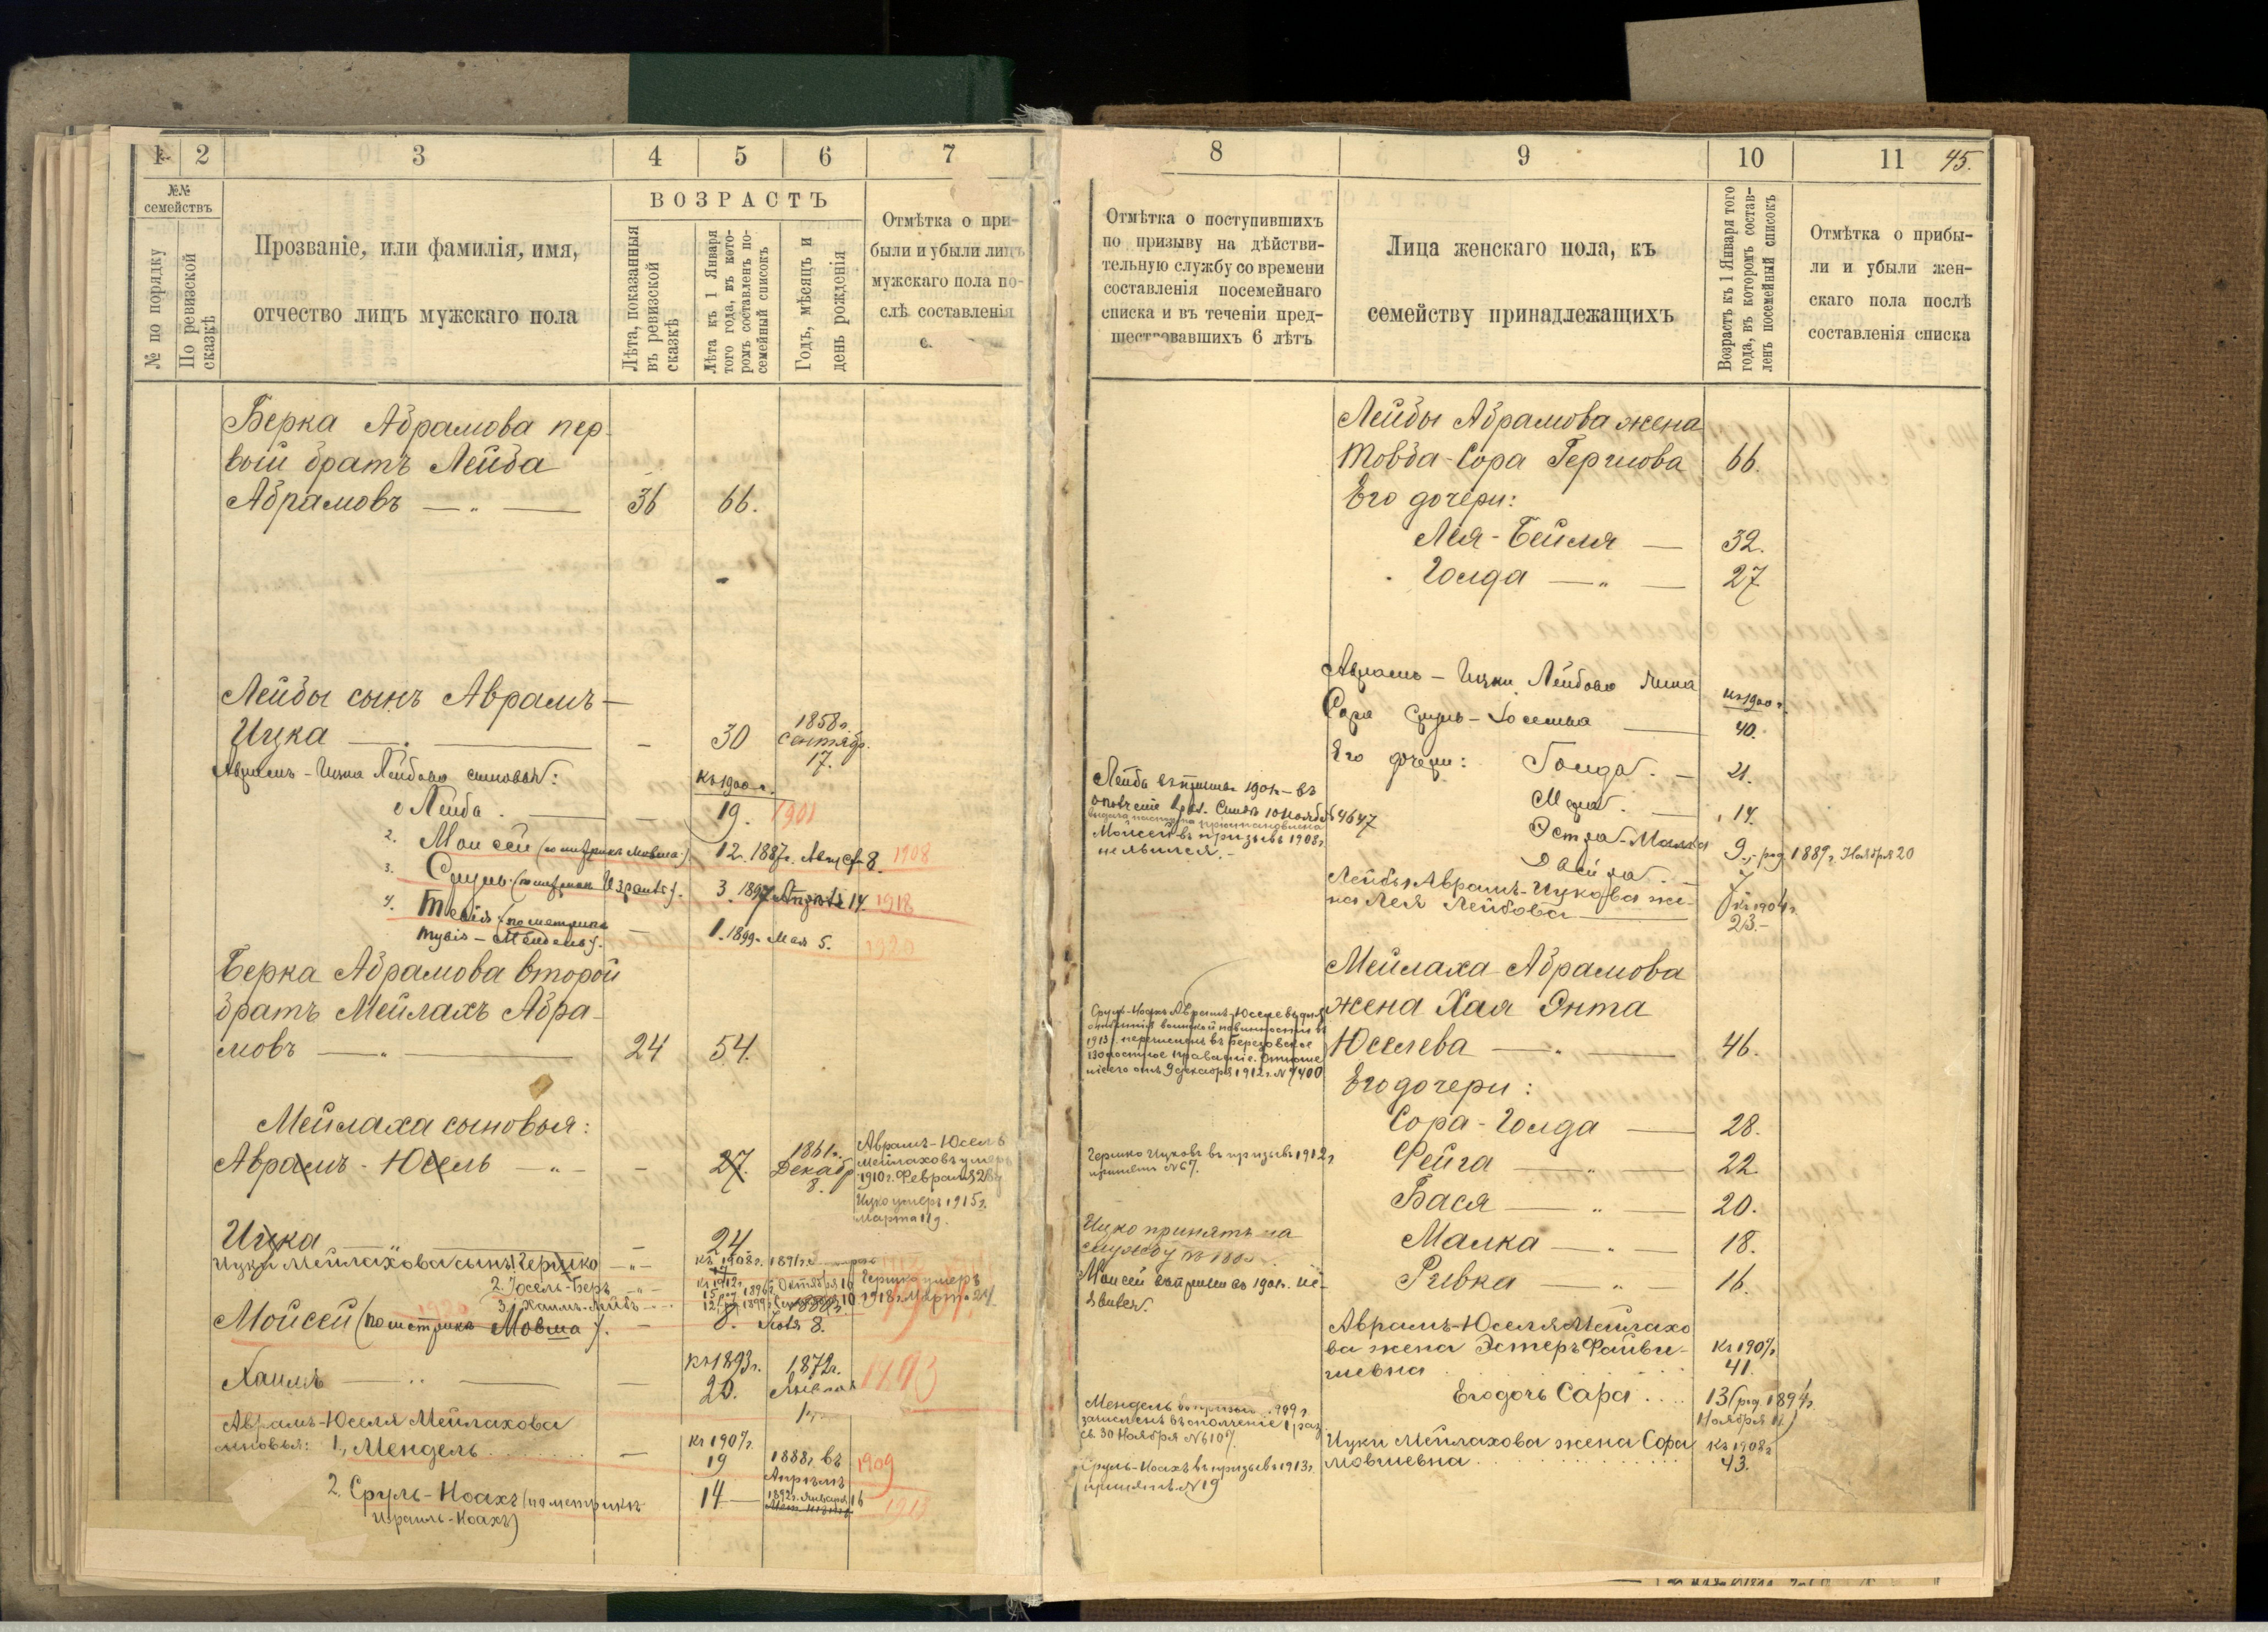 1
2
3
4
5
6
7
№№
семействъ
№ по порядку
По ревизской
сказкѣ
Прозваніе, или фамилія, имя,
отчество лицъ мужскаго пола
ВОЗРАСТЪ
Лѣта, показанныя
въ ревизской
сказкѣ
Лѣта къ 1 Января
того года, въ кото-
ромъ составленъ по-
семейный списокъ
Годъ, мѣсяцъ и
день рожденія
Отмѣтка о при-
были и убыли лицъ
мужскаго пола по-
слѣ составленія
Берка Абрамова пер-
вый братъ Лейба
Абрамовъ 36 66.
Лейбы сынъ Аврамъ-
Ицка — 30 1858 г.
Сентябр.
17.
Аврамъ-Ицка Лейбова сыновья:
къ 1900 г.
1 Лейба — 19. 1901
2. Мойсей (по метрикѣ Мовша) 12. 1887 г. Август 8. 1908
3. Сруль (по метрикѣ Израиль). 3. 1897 Апрѣля 14. 1918
4. Тевія (по метрикѣ
Тувія-Мендель). — 1. 1899 Мая 5. 1920
Берка Абрамова второй
братъ Мейлахъ Абра-
мовъ 24 54.
Мейлаха сыновья:
Аврамъ-Юсель — 27. 1861 г.
Декабр
8.
Аврамъ-Юсель
Мейлаховъ умеръ
1910 г. Февраля 28
Ицко умеръ 1915 г.
Марта 11 д.
Ицка — 24
Ицки Мейлахова сынъ 1 Гершко къ 1908 г. 1891 г.
17
2. Іосель-Беръ къ 1912 г.
15 род. 1896 г. Октября 10
3. Хаимъ-Лейбъ 12 род. 1899 г. 10
Гершко умеръ
1918 г. Марта 24
Мойсей (по метрикѣ Мовша). — 8. Іюля 8.
Хаимъ — къ 1893 г.
20. 1872 г.
1893
Аврамъ-Юселя Мейлахова
сыновья: 1, Мендель — къ 1907 г.
19 1888 г. въ
Апрѣлѣ 1909
2. Сруль-Ноахъ (по метрикѣ
Израиль-Ноахъ) 14 1892 г. Января 16 1913
8
9
10
11
45.
Отмѣтка о поступившихъ
по призыву на дѣйстви-
тельную службу со времени
составленія посемейнаго
списка и въ теченіи пред-
шествовавшихъ 6 лѣтъ
Лица женскаго пола, къ
семейству принадлежащихъ
Возрастъ къ 1 Января того
года, въ которомъ состав-
ленъ посемейный списокъ
Отмѣтка о прибы-
ли и убыли жен-
скаго пола послѣ
составленія списка
Лейбы Абрамова жена
Товба-Сора Гершова 66.
Его дочери:
Лея-Бейля 32.
Голда 27
Аврамъ-Ицки Лейбова жена
Сора Сруль-Іоселева
къ 1900 г.
40.
Его дочери: Голда. 21.
14.
Эстра-Малка 9., род. 1889 г. Ноября 20
7
Лейбы Аврамъ-Ицкова же-
на Лея Лейбова къ 1904 г.
23.
Лейба въ призывъ 1901 г. въ
ополченіе 10 Ноября № 4647
Мойсей въ призывъ 1908 г.
не явился.
Мейлаха Абрамова
жена Хая Энта
Юселева 46.
Сруль-Ноахъ Аврамъ-Юселевъ для
отбытія воинской повинности въ
1913 г. перешелъ въ Березовское
волостное правленіе. Отноше-
ніе его отъ 9 декабря 1912 г. № 7400
Его дочери:
Сора-Голда 28.
Фейга 22.
Бася 20.
Малка 18.
Ривка 16.
Гершко Ицковъ въ призывъ 1912 г.
принятъ № 67.
Ицко принятъ на
службу въ
Мойсей въ призывъ въ 1901 г. не
явился.
Аврамъ-Юселя Мейлахо
ва жена Эстеръ Файви-
шевна къ 1907 г.
41.
Его дочь Сара 13 (род. 1894 г.
Ноября 11)
Мендель въ призывъ 1909 г.
зачисленъ въ ополченіе 1 раз.
св. 30 Ноября № 6107.
Ицки Мейлахова жена Сора
Мовшевна къ 1908 г.
43.
Сруль-Ноахъ въ призывъ 1913 г.
принятъ № 19